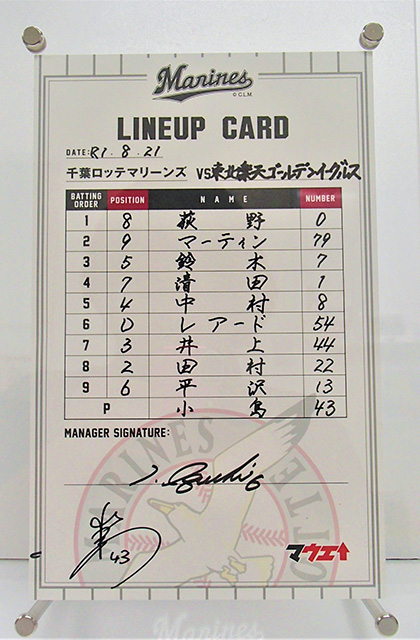 Marines
©C.L.M.
LINEUP CARD
DATE: R1.8.21
千葉ロッテマリーンズ VS 東北楽天ゴールデンイーグルス
BATTING ORDER POSITION NAME NUMBER
1 8 荻野 0
2 9 マーティン 79
3 5 鈴木 7
4 7 清田 1
5 4 中村 8
6 D レアード 54
7 3 井上 44
8 2 田村 22
9 6 平沢 13
P 小島 43
MANAGER SIGNATURE:
43
マウエ↑
MARINES